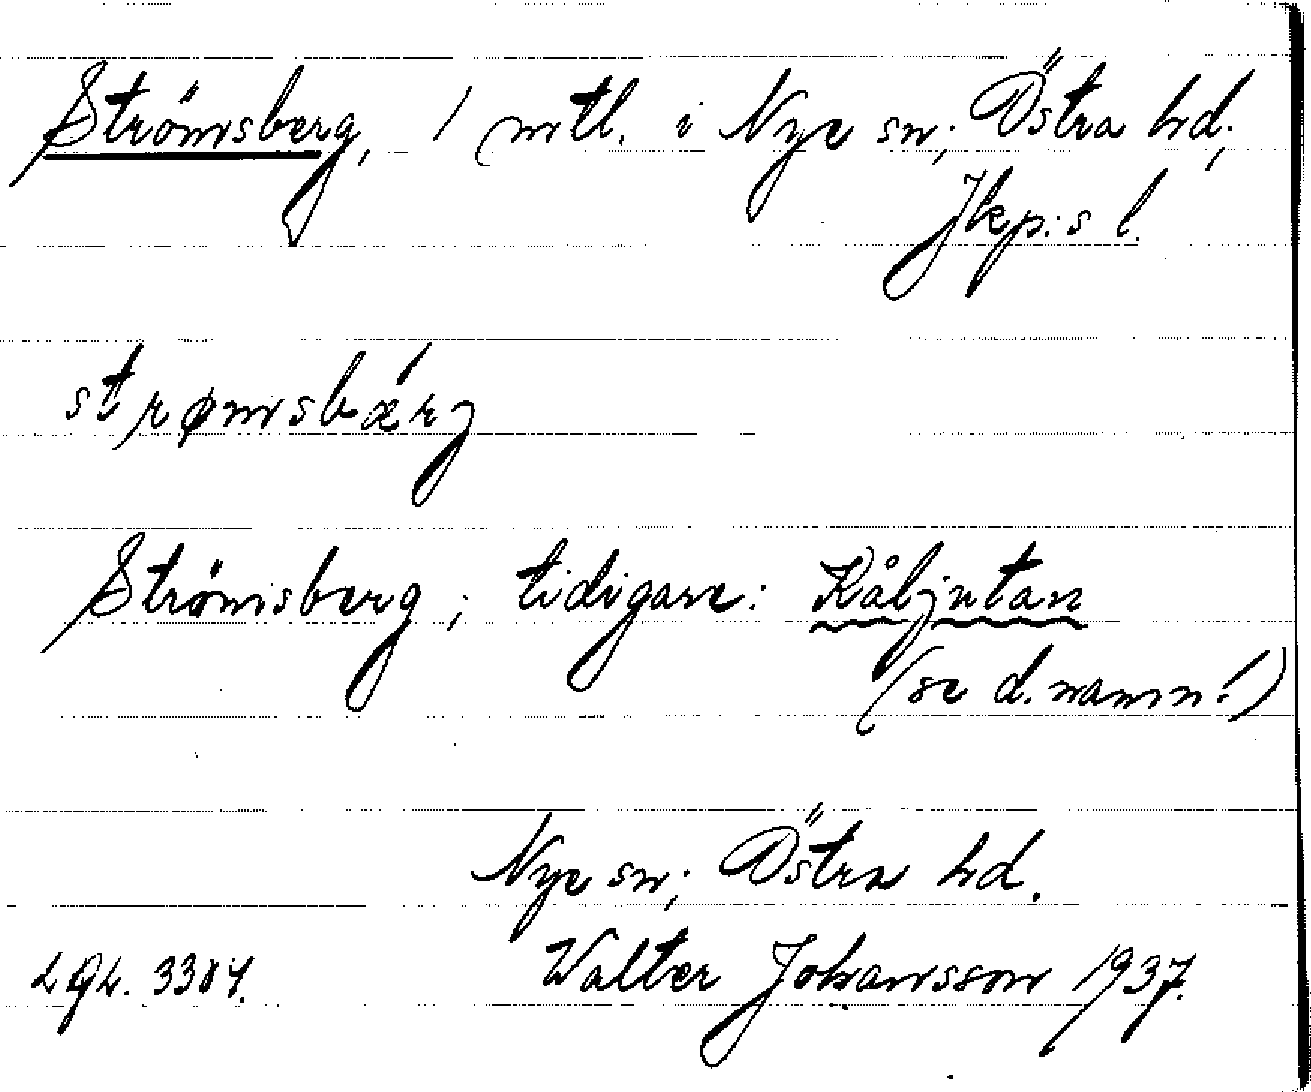 Strömsberg, 1 mtl. i Nye sn; Östra hd;
Jkp:s l.
strømsbǽrj
Strömsberg; tidigare: Kåljutan
(se d. namn!)
Nye sn; Östra hd.
Walter Johansson 1937.